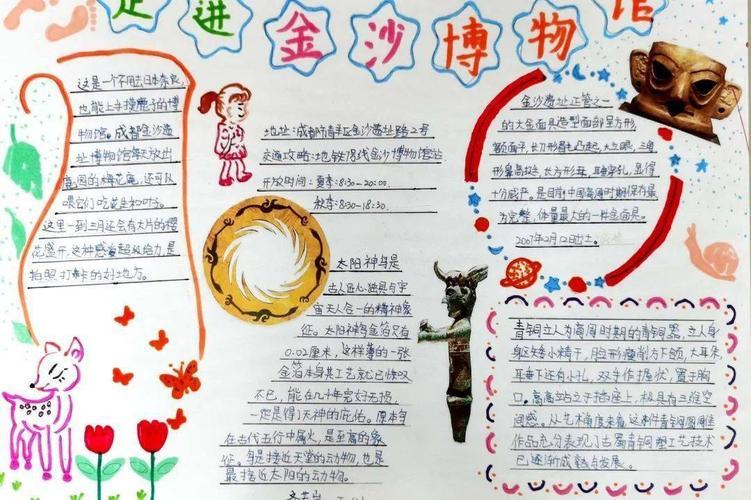 走进金沙博物馆
这是一个不用去日本奈良
也能上手摸鹿子的博
物馆。成都金沙遗
址博物馆每天放出
鹿园的梅花鹿,还可以
喂它们吃花生和叶子。
这里一到三月还会有大片的樱
花盛开,这种感觉超级给力,是
拍照打卡的好地方。
地址:成都市青羊区金沙遗址路2号
交通攻略:地铁7号线金沙博物馆站
开放时间:夏季:8:30-20:00.
秋季:8:30-18:30.
太阳神鸟是
古人匠心独具与宇
宙天人合一的精神象
征。太阳神鸟金箔只有
0.02厘米,这样薄的一张
金箔本身其工艺就已惊叹
不已,能在几千年完好无损,
一定是得了天神的庇佑。原本鸟
在古代五行中属火,是至高的象
征。鸟是接近天堂的动物,也是
最接近太阳的动物。
金沙遗址正管之一
的大金面具造型面部呈方形,
额面平,长刀形眉毛凸起,大立眼,三角
形鼻高挺,长方形耳,耳垂穿孔,显得
十份威严。是目前中国商周时期保存最
为完整,体量最大的一件金面具。
2007年2月12日出土。
青铜立人为商周时期的青铜器,立人身
身区矮小精干,脸形瘦削方下颌,大耳朵,
耳垂下还有小孔,双手作握状,置于胸
口。高高站立于插座上,极具有三维空
间感。从艺术角度来看,这件青铜圆周雕
作品充分表现了古蜀青铜塑工艺技术
已逐渐成熟与发展。